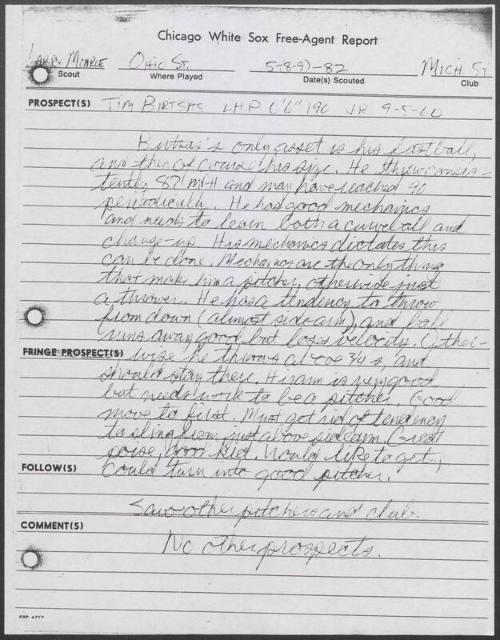 Chicago White Sox Free-Agent Report
Larry Monroe Ohio St. 5-8,9)-82 Mich St.
Scout Where Played Date(s) Scouted Club
PROSPECT(S) Tim Birtsas LHP 6'6" 190 JR 9-5-60
Birtsas's only asset is his fastball,
and then of course his size. He threw consis-
tently 87 MPH and may have reached 90
periodically. He had good mechanics
and needs to learn both a curveball and
change-up. His mechanics dictates this
can be done. Mechanics are the only thing
that make him a pitcher, otherwise just
a thrower. He has a tendency to throw
from down (almost sidearm) and ball
runs away good but loses velocity. Other-
FRINGE PROSPECT(S) wise he throws above 3/4's, and
should stay there. His arm is very good
but needs work to be a pitcher. Good
move to first. Must get rid of tendency
to sling from just above sidearm. Great
poise, good kid. Would like to get,
FOLLOW(S) Could turn into good pitcher.
Saw other pitchers and club.
COMMENT(S)
No other prospects.